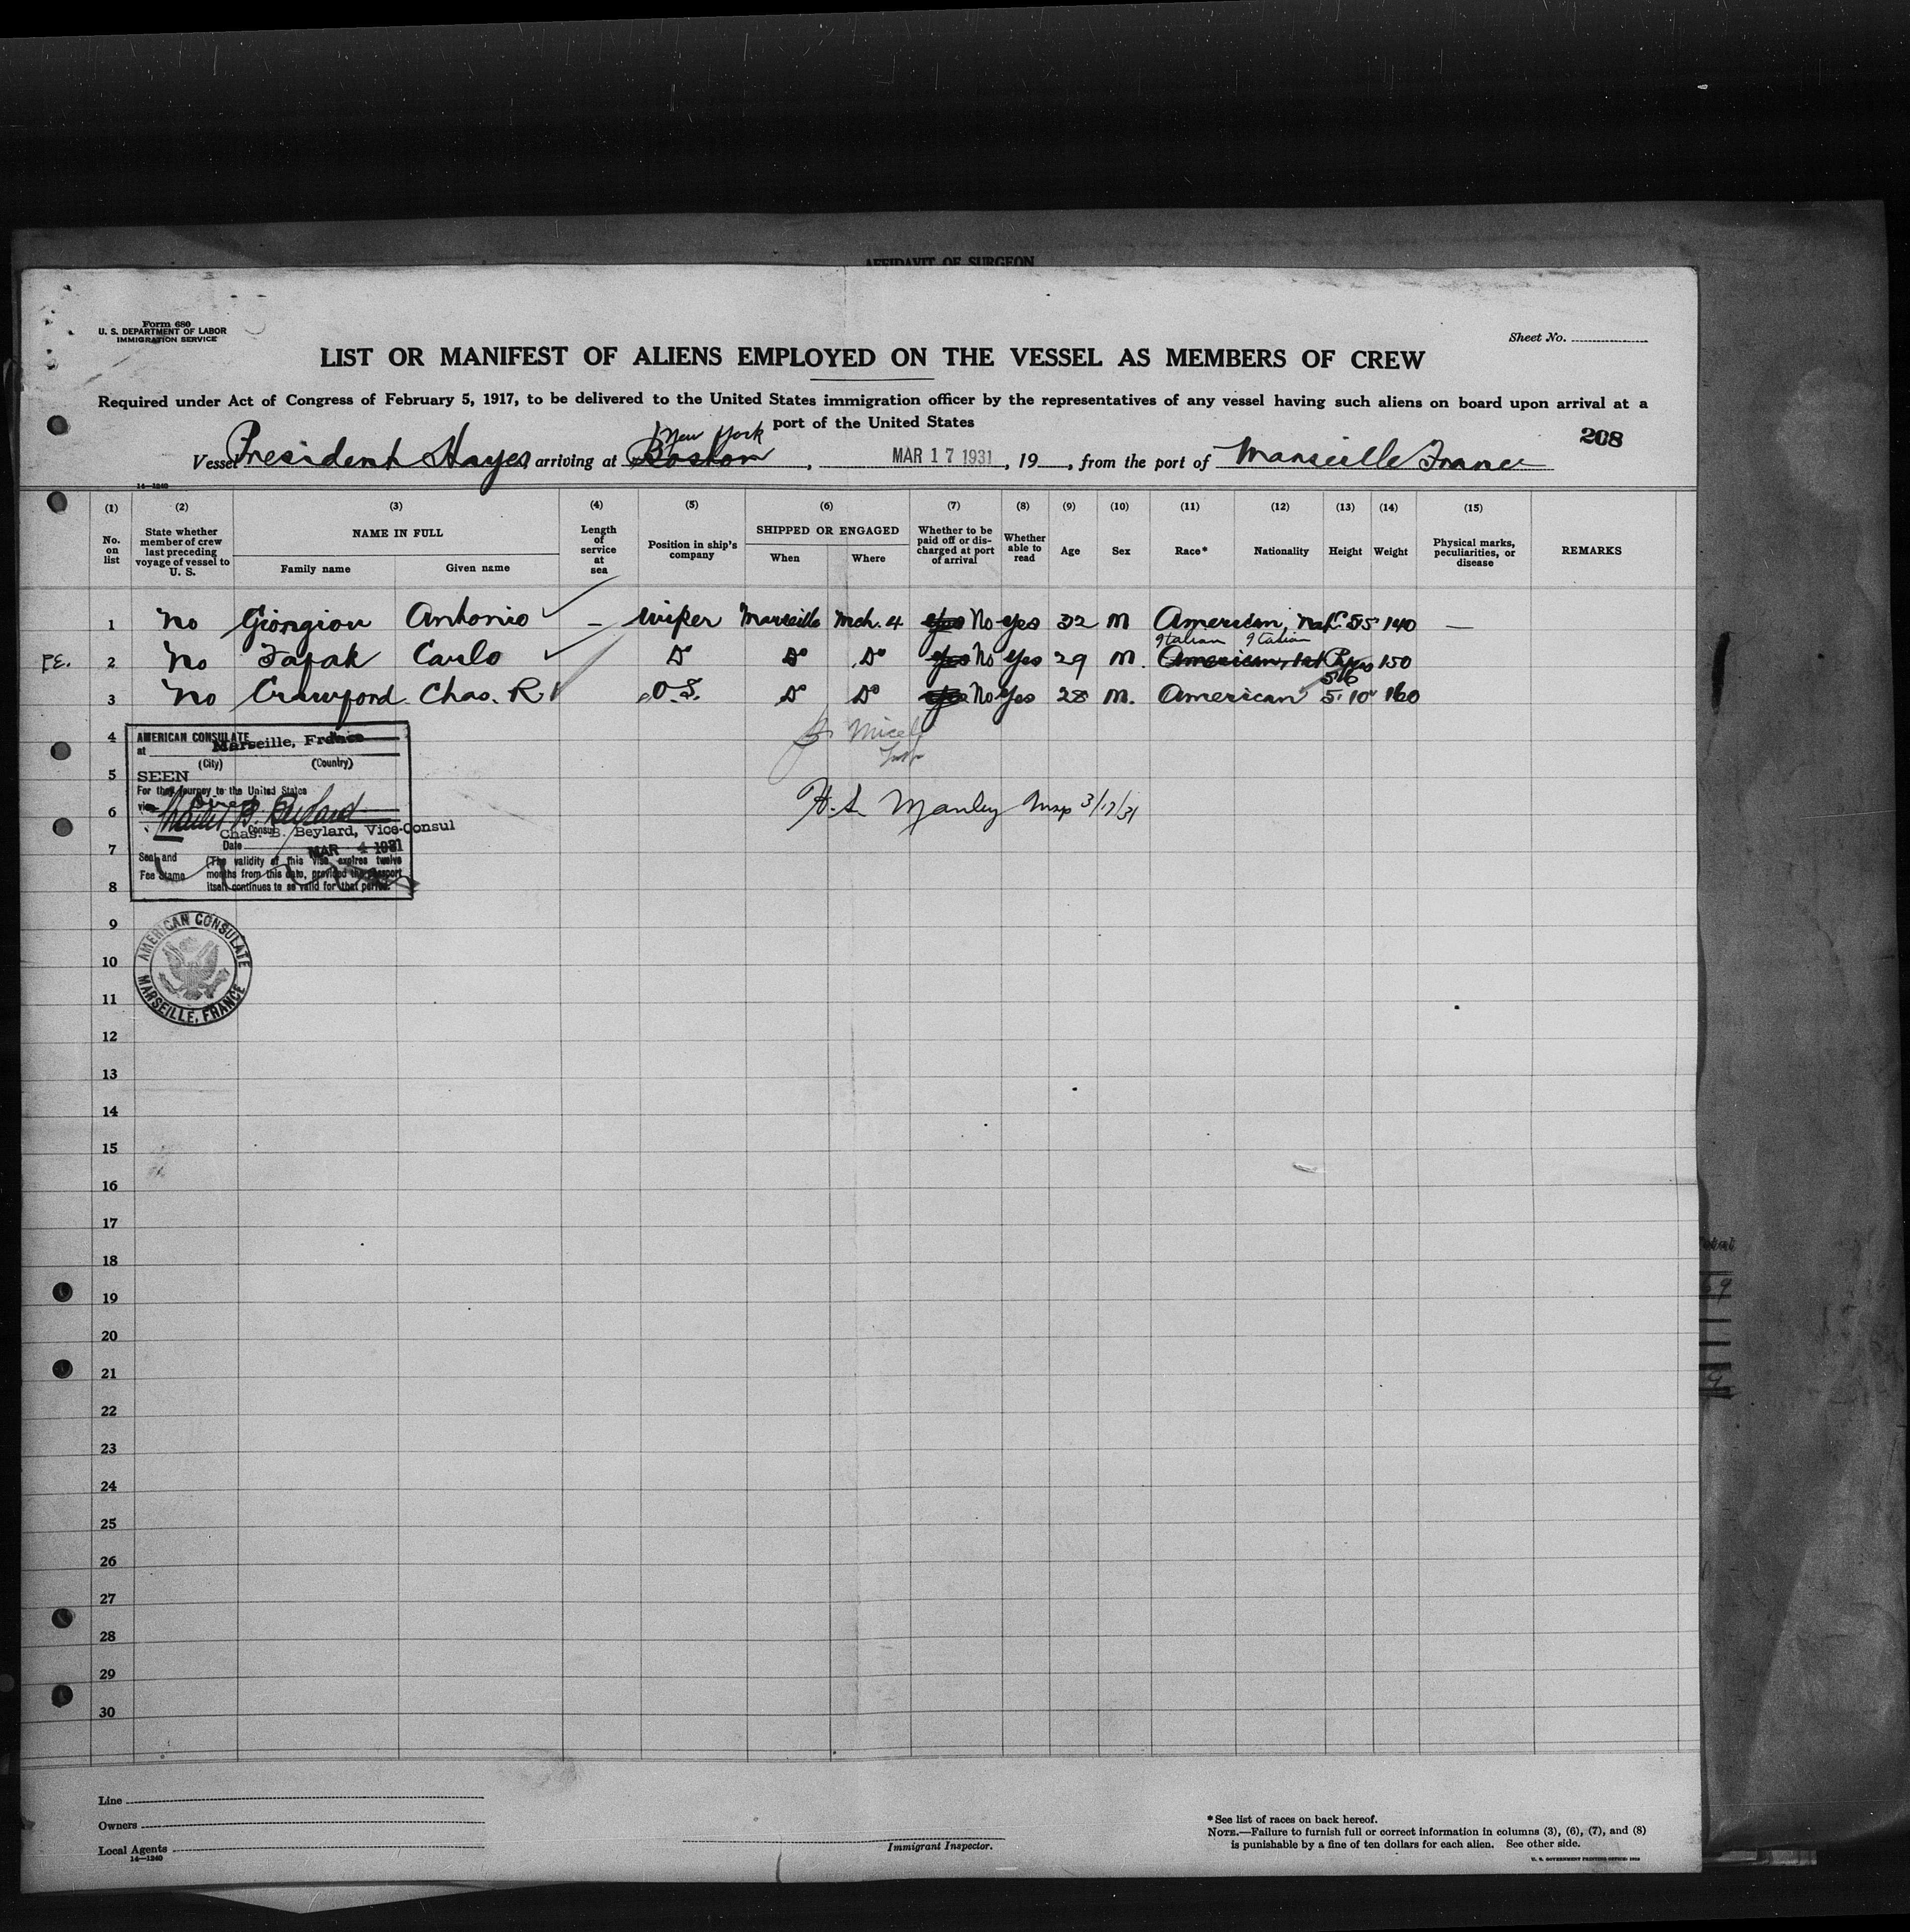 AFFIDAVIT OF SURGEON
Form 680
U. S. DEPARTMENT OF LABOR
IMMIGRATION SERVICE
Sheet No.
LIST OR MANIFEST OF ALIENS EMPLOYED ON THE VESSEL AS MEMBERS OF CREW
Required under Act of Congress of February 5, 1917, to be delivered to the United States immigration officer by the representatives of any vessel having such aliens on board upon arrival at a
port of the United States
208
New York
Vessel President Hayes, arriving at Boston, MAR 17 1931, 19, from the port of Marseille France
14—1240
(1) (2) (3) (4) (5) (6) (7) (8) (9) (10) (11) (12) (13) (14) (15)
No. on list
State whether member of crew last preceding voyage of vessel to U. S.
NAME IN FULL
Family name
Given name
Length of service at sea
Position in ship's company
SHIPPED OR ENGAGED
When
Where
Whether to be paid off or discharged at port of arrival
Whether able to read
Age
Sex
Race*
Nationality
Height
Weight
Physical marks, peculiarities, or disease
REMARKS
1 No Giorgiou Antonio – wiper Marseille Mch. 4 Yes No Yes 32 M American, Nat. 5'5" 140 —
Italian Italian
PE. 2 No Fapak Carlo Do Do Do Yes No Yes 29 M. American 150
5'6
3 No Crawford Chas. R. O.S. Do Do Yes No Yes 28 M. American 5'10" 160
4
5
6
H. S. Manley Insp 3/17/31
7
8
AMERICAN CONSULATE
at Marseille, France
(City) (Country)
SEEN
For the journey to the United States
via Direct
Chas. B. Beylard, Vice-Consul
Consul
Date MAR 4 1931
Seal and
Fee Stamp
(The validity of this visa expires twelve
months from this date, provided the passport
itself continues to be valid for that period.
9
AMERICAN CONSULATE
MARSEILLE, FRANCE
10
11
12
13
14
15
16
17
18
19
20
21
22
23
24
25
26
27
28
29
30
Line
Owners
Local Agents
14—1240
Immigrant Inspector.
*See list of races on back hereof.
NOTE.—Failure to furnish full or correct information in columns (3), (6), (7), and (8)
is punishable by a fine of ten dollars for each alien. See other side.